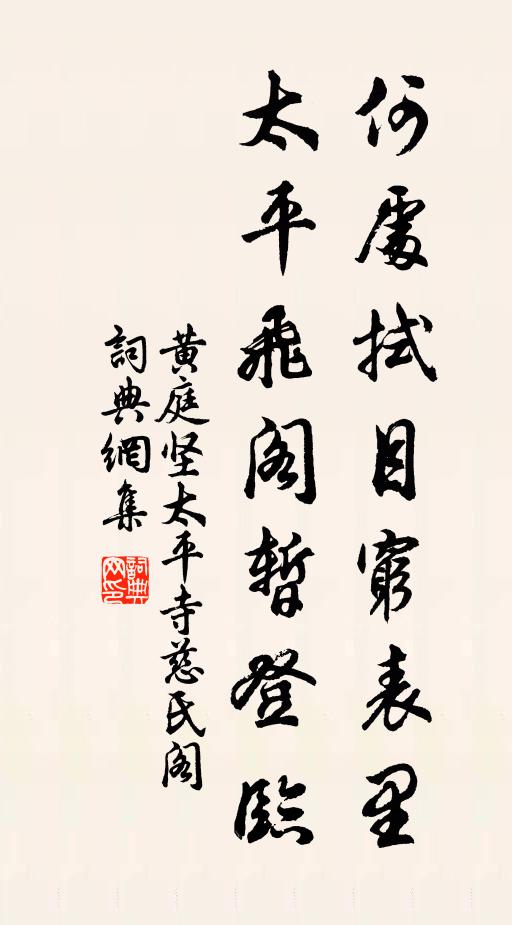 何處拭目窮表里
太平飛阁暫登臨
黄庭坚太平寺慈氏阁
詞典網集
詞典网印